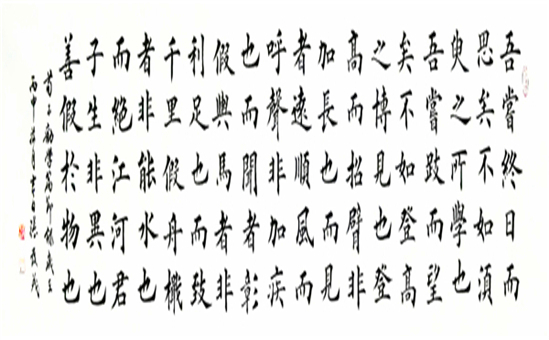 吾嘗終日而
思矣不如湏
臾之所學也
吾嘗跂而望
矣不如登高
之博見也登
高而招臂非
加長也而見
者遠順風而
呼聲非加疾
也而聞者彰
假與馬者非
利足也而致
千里假舟檝
者非能水也
而絕江河君
子生非異也
善假於物也
荀子勸學篇節錄歲在
丙申